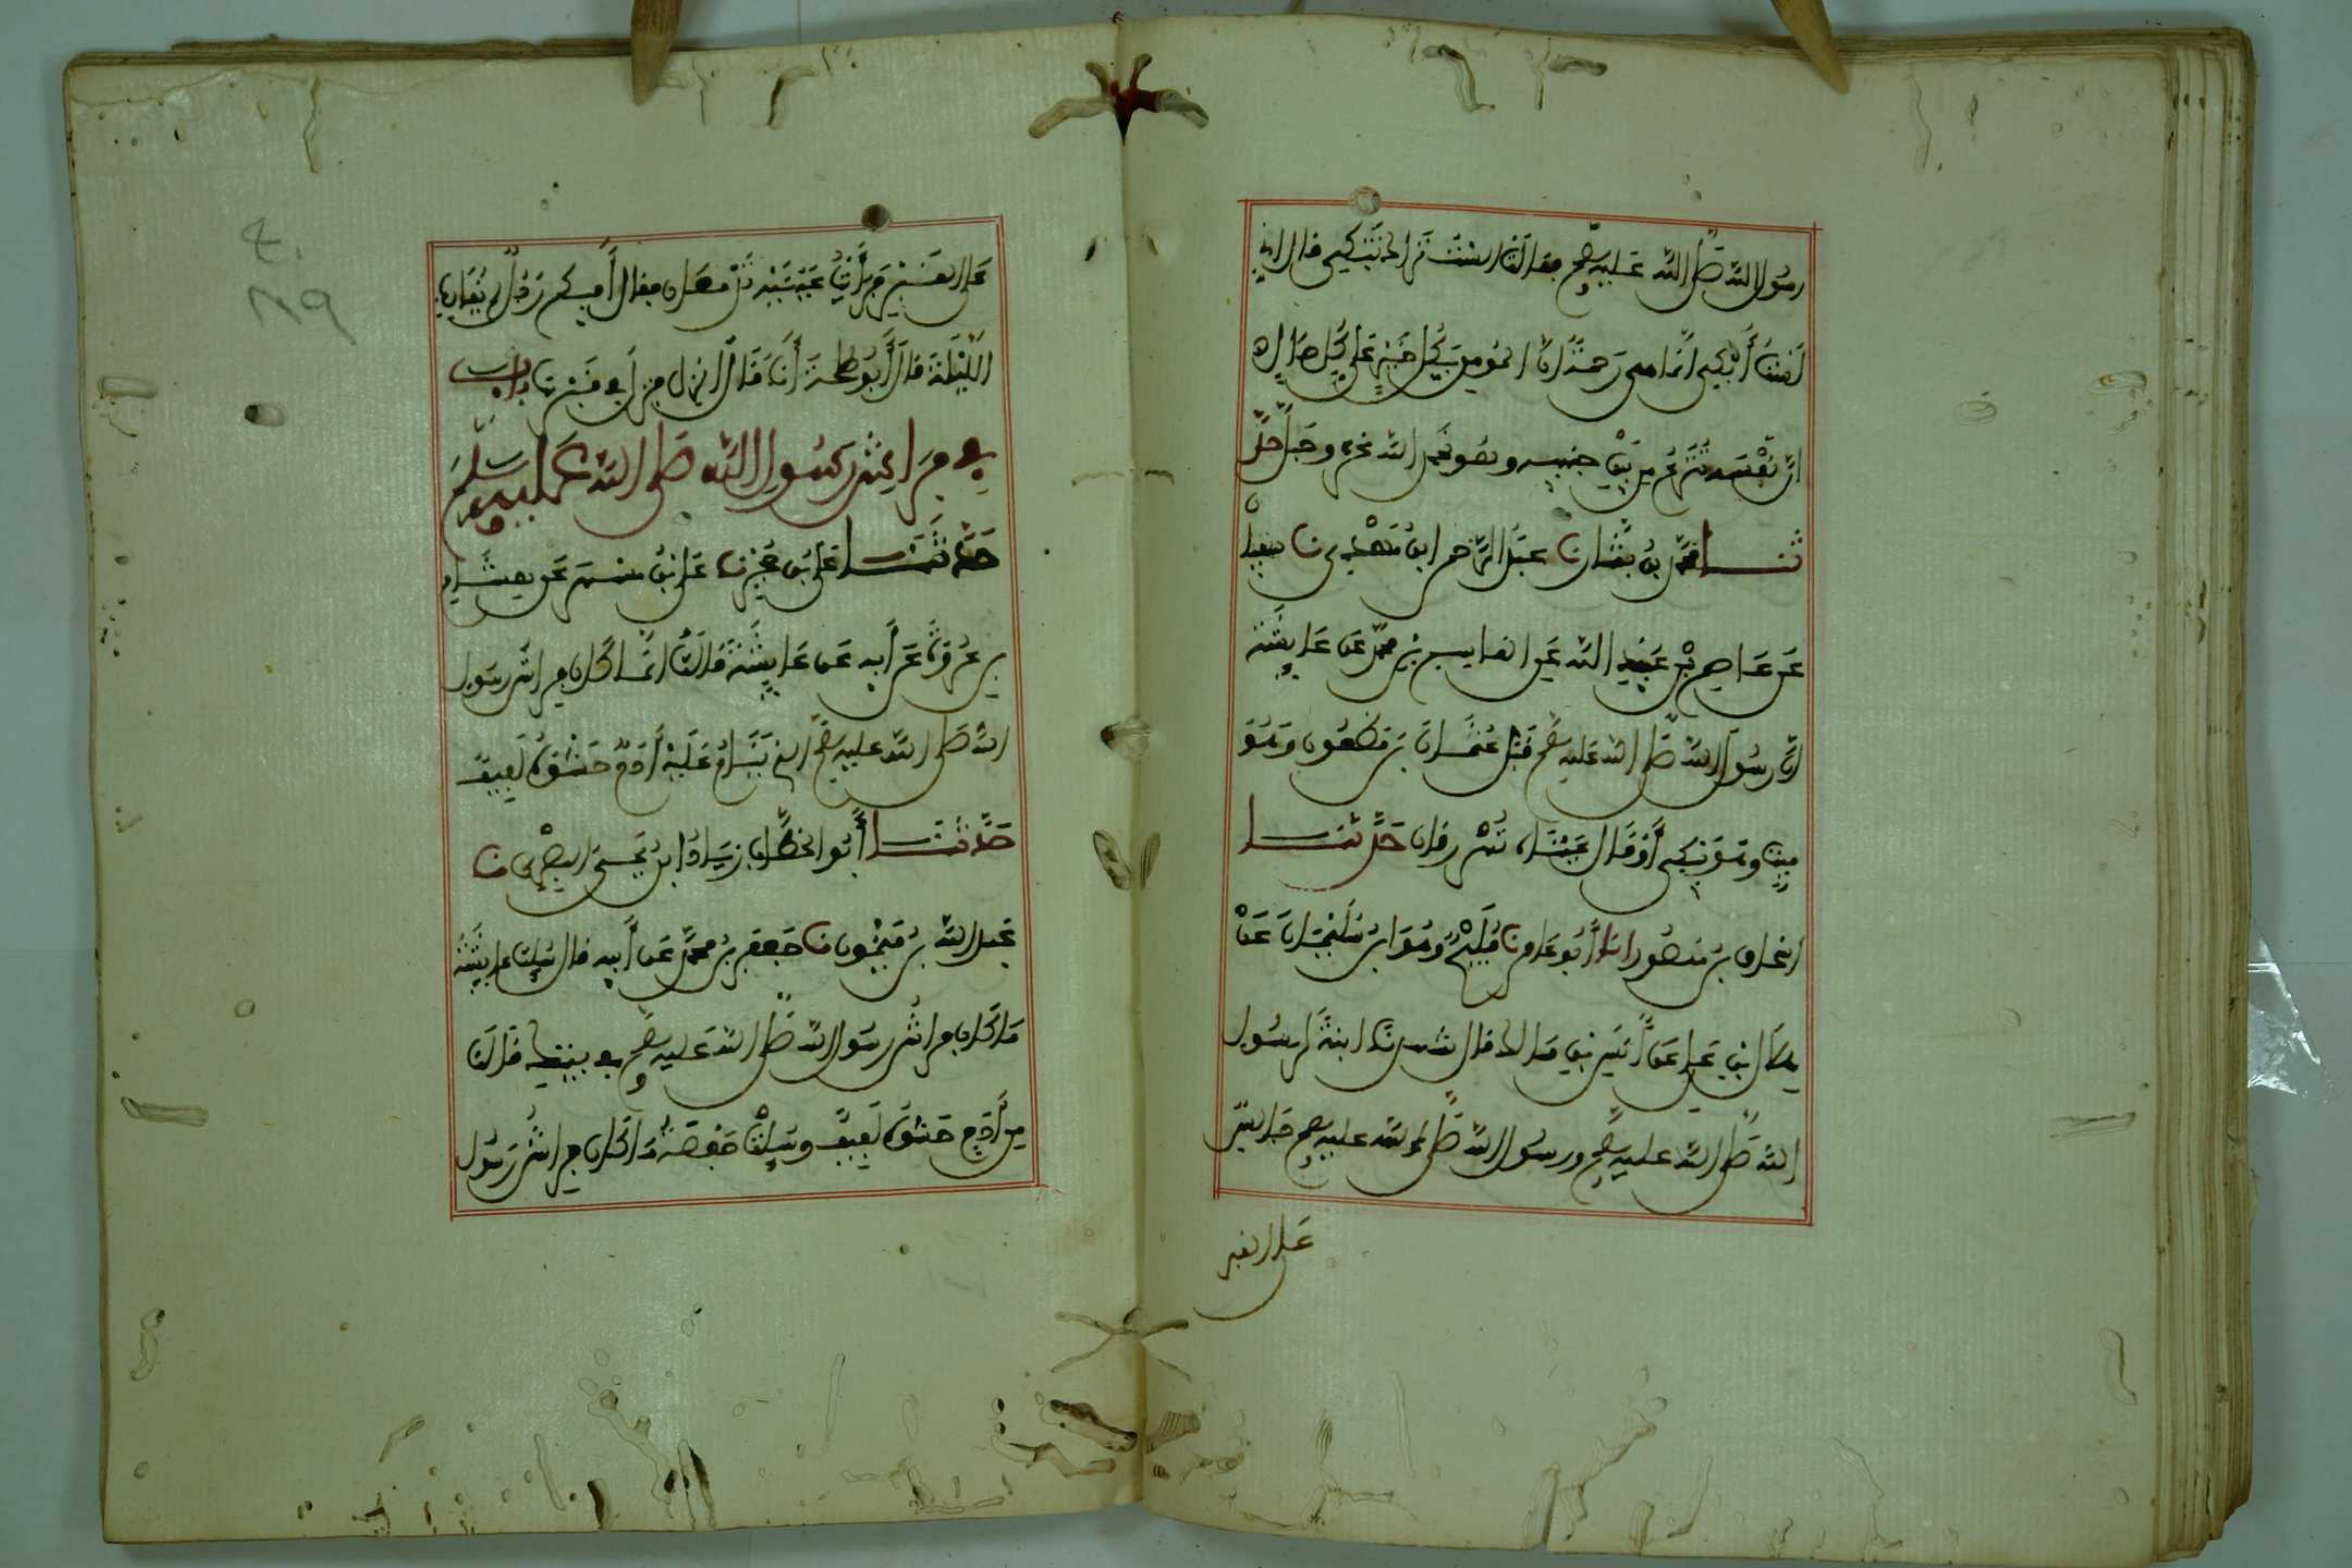 رسول الله صلى الله عليه وسلم فقالت الست اراك تبكي قال اني
لست أبكي انما هي رحمة ان المومن بكل خير على كل حال
ان نفسه تنزع من بين جنبيه وهو يحمد الله عز وجل حد
ثنا محمد بن بشار نا عبد الرحمن ابن مهدي نا سفيان
عن عاصم بن عبيد الله عن القاسم بن محمد عن عايشة
ان رسول الله صلى الله عليه وسلم قبل عثمان بن مظعون وهو
ميت وهو يبكي أو قال عيناه تهرقان حدثنا
اسحاق بن منصور انا أبو عامر نا فليح وهو ابن سليمان عن
هلال ابن علي عن أنس بن مالك قال شهدنا ابنة لرسول
الله صلى الله عليه وسلم ورسول الله صلى الله عليه وسلم جالس
على القبر
على القبر فرأيت عينيه تدمعان فقال أفيكم رجل لم يقارف
الليلة قال أبو طلحة أنا قال انزل فنزل في قبرها باب
في فراش رسول الله صلى الله عليه وسلم
حدثنا علي بن حجر نا علي بن مسهر عن هشام
بن عروة عن أبيه عن عايشة قالت انما كان فراش رسول
الله صلى الله عليه وسلم الذي ينام عليه أدم حشوه ليف
حدثنا أبو الخطاب زياد ابن يحيى البصري نا
عبد الله بن ميمون نا جعفر بن محمد عن أبيه قال سيلت عايشة
ما كان فراش رسول الله صلى الله عليه وسلم في بيتك قالت
من أدم حشوه ليف وسيلت حفصة ما كان فراش رسول
٤٠
٨٩